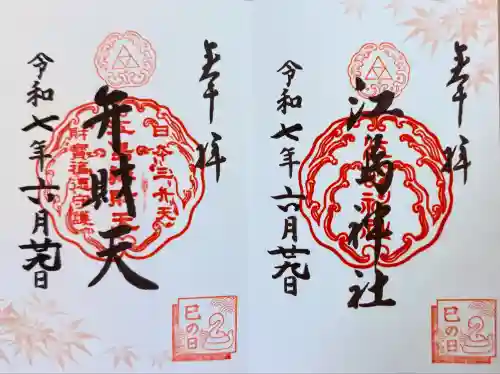 奉拝
江島神社
令和七年六月廿九日
巳の日
奉拝
弁財天
令和七年六月廿九日
巳の日